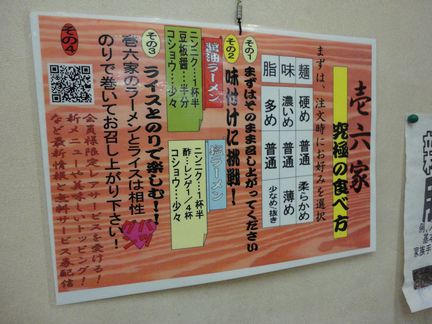 壱六家
究極の食べ方
まずは、注文時にお好みを選択
麺 硬め 普通 柔らかめ
味 濃いめ 普通 薄め
脂 多め 普通 少なめ/抜き
その1
まずはそのままお召し上がってください
その2
味付けに挑戦!
醤油ラーメン
ニンニク…1杯半
豆板醤…半分
コショウ…少々
塩ラーメン
ニンニク…1杯半
酢…レンゲ1/4杯
コショウ…少々
その3
ライスとのりで楽しむ!!
壱六家のラーメンとライスは相性
バツグン
のりで巻いてお召し上がり下さい!
その4
会員様限定レアサービスを受ける!
新メニューや美味しいトッピング!
など最新情報と無料サービス券配信